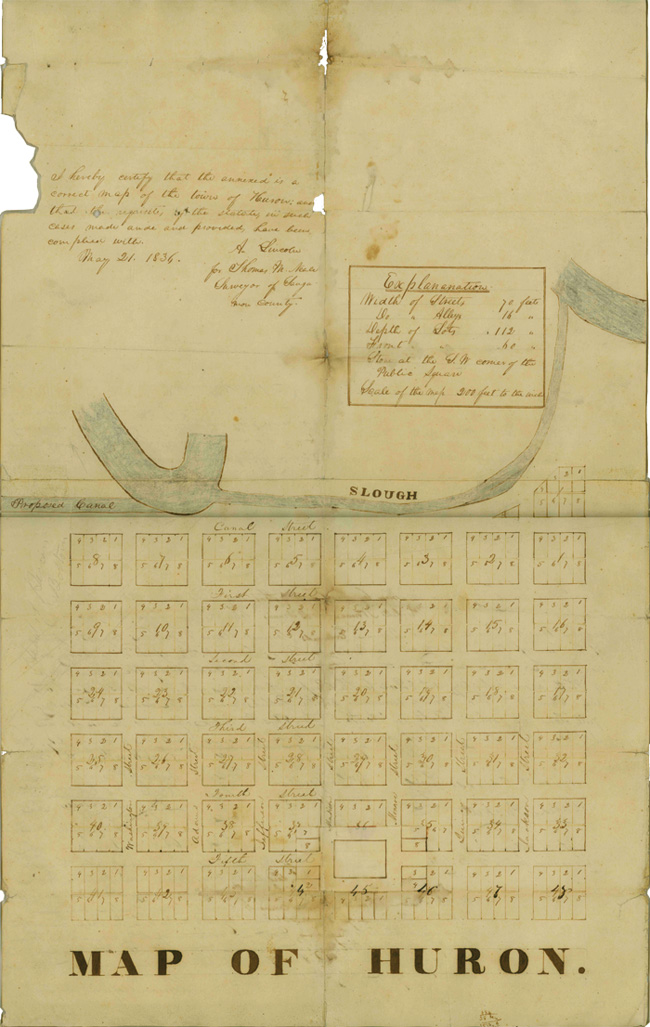 I hereby certify that the annexed is a
correct map of the town of Huron; and
that the requisits of the statutes in such
cases made ande and provided, have been
complied with.
May 21. 1836.
A. Lincoln
for Thomas M. Neale
Surveyor of Sanga
mon County.
Explananation
Width of Streets 70 feet
Do " Alleys 16 "
Depth of Lots " 112 "
Front " " 60 "
Ston at the S.W corner of the
Public Square
Scale of the map 200 feet to the inch
SLOUGH
Proposed Canal
Canal Street
8 7 6 5 4 3 2 1
First Street
9 10 11 12 13 14 15 16
Second Street
24 23 22 21 20 19 18 17
Third Street
25 26 27 28 29 30 31 32
Washington Street
Adams Street
Jefferson Street
Street
Street
Street
Jackson Street
Fourth Street
40 39 38 37 36 35 34 33
Fifth Street
41 42 43 4 45 46 47 48
MAP OF HURON.